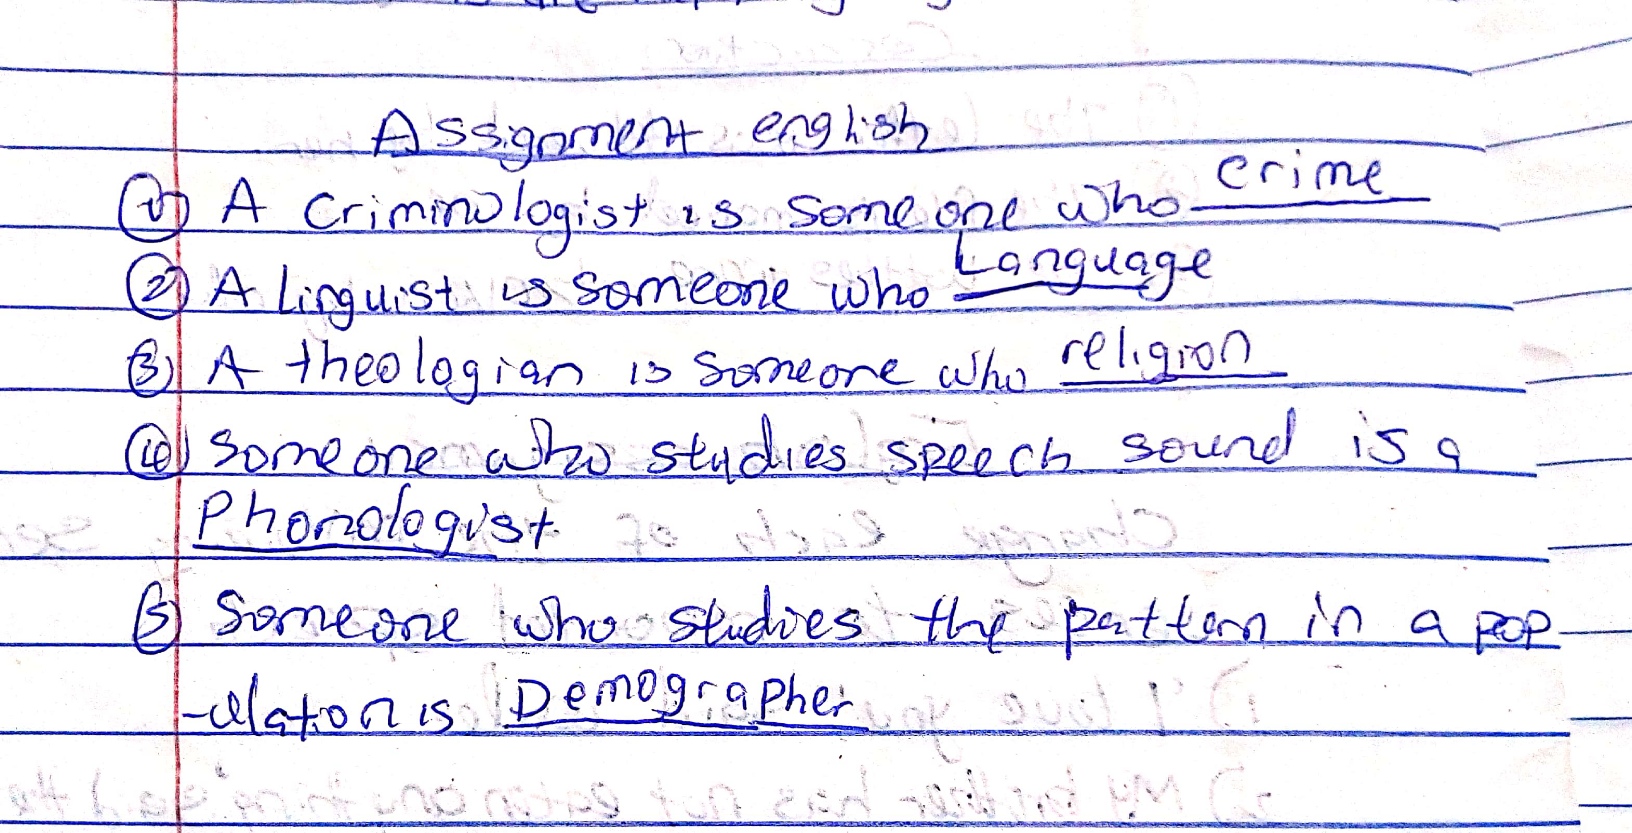 Assignment english
① A Criminologist is Someone who crime
② A Linguist is Someone who Language
③ A theologian is Someone who religion
④ Someone who studies speech sound is a
Phonologist
⑤ Someone who studies the pattern in a pop
-ulation is Demographer